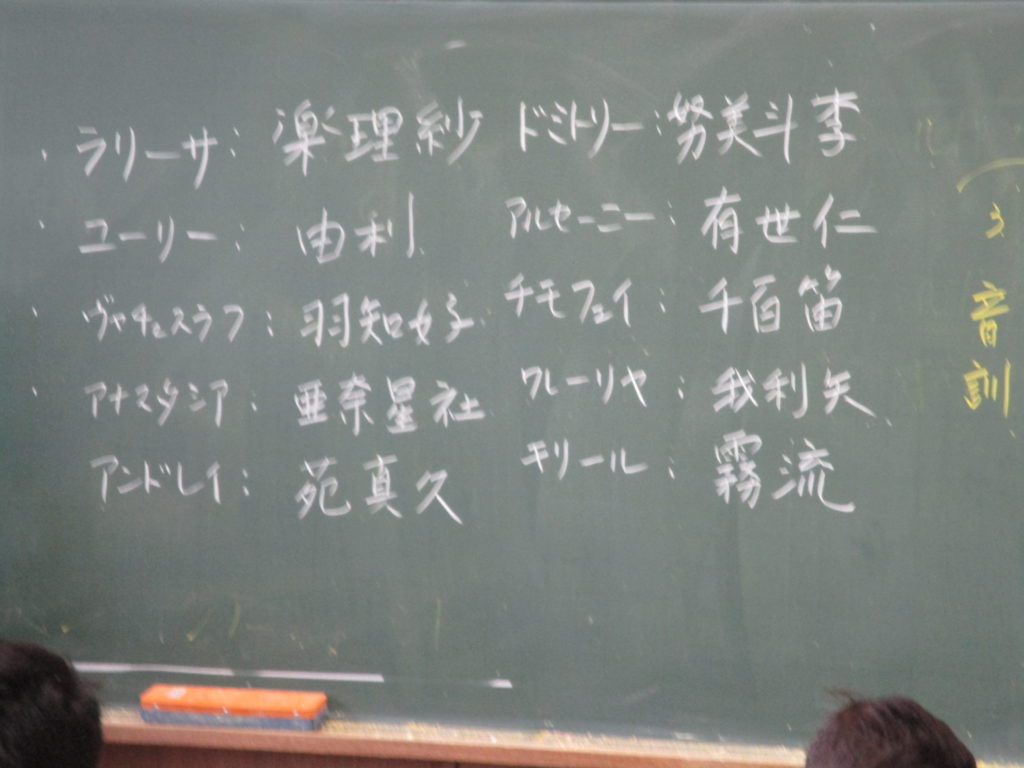 ラリーサ：楽理紗
ユーリー：由利
ヴャチェスラフ：羽知好
アナスタシア：亜奈星社
アンドレイ：苑真久
ドミトリー：努美斗李
アルセーニー：有世仁
チモフェイ：千百笛
ワレーリヤ：我利矢
キリール：霧流
音訓